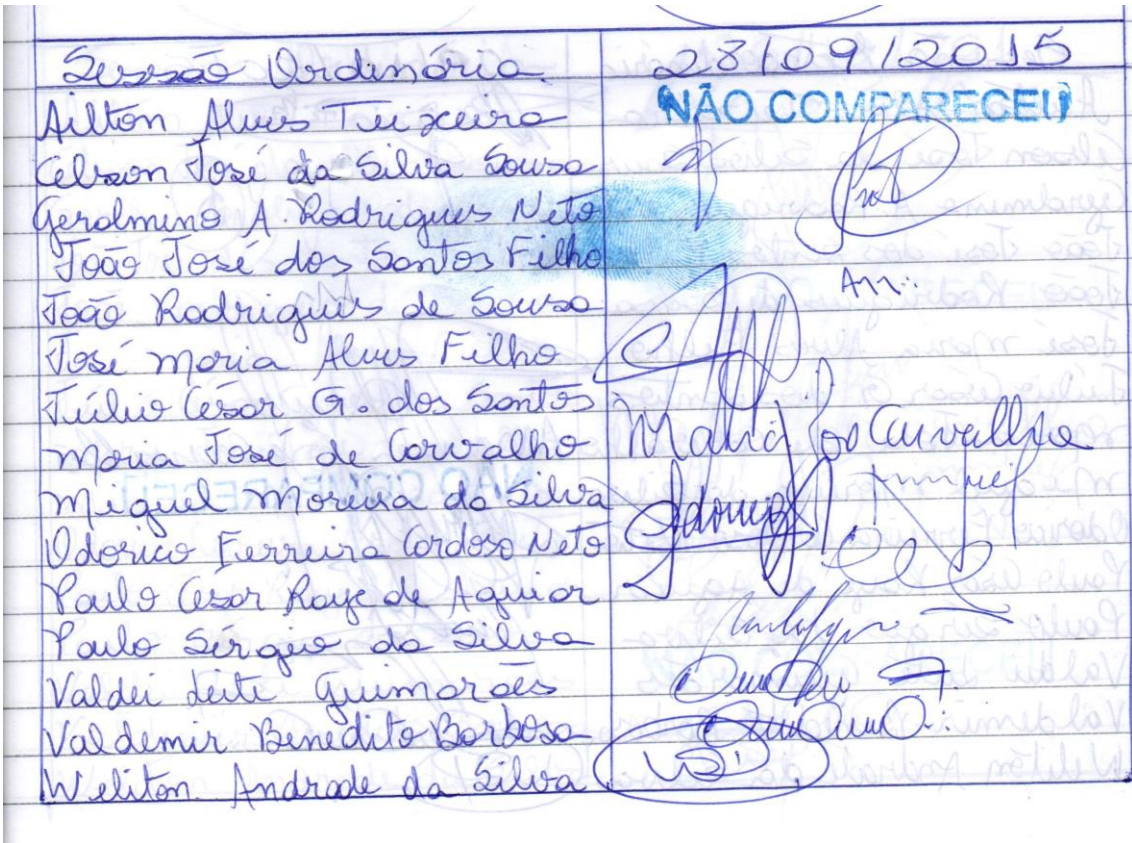 Sessão Ordinária 28/09/2015
Ailton Alves Teixeira NÃO COMPARECEU
Celson José da Silva Sousa
Gerolmino A. Rodrigues Neto
João José dos Santos Filho
João Rodrigues de Sousa
José Maria Alves Filho
Túlio César G. dos Santos
Maria José de Carvalho Maria José Carvalho
Miguel Moreira da Silva Miguel
Odorico Ferreira Cardoso Neto
Paulo César Raye de Aguiar
Paulo Sérgio da Silva
Valdei Leite Guimarães
Valdemir Benedito Barbosa
Weliton Andrade da Silva